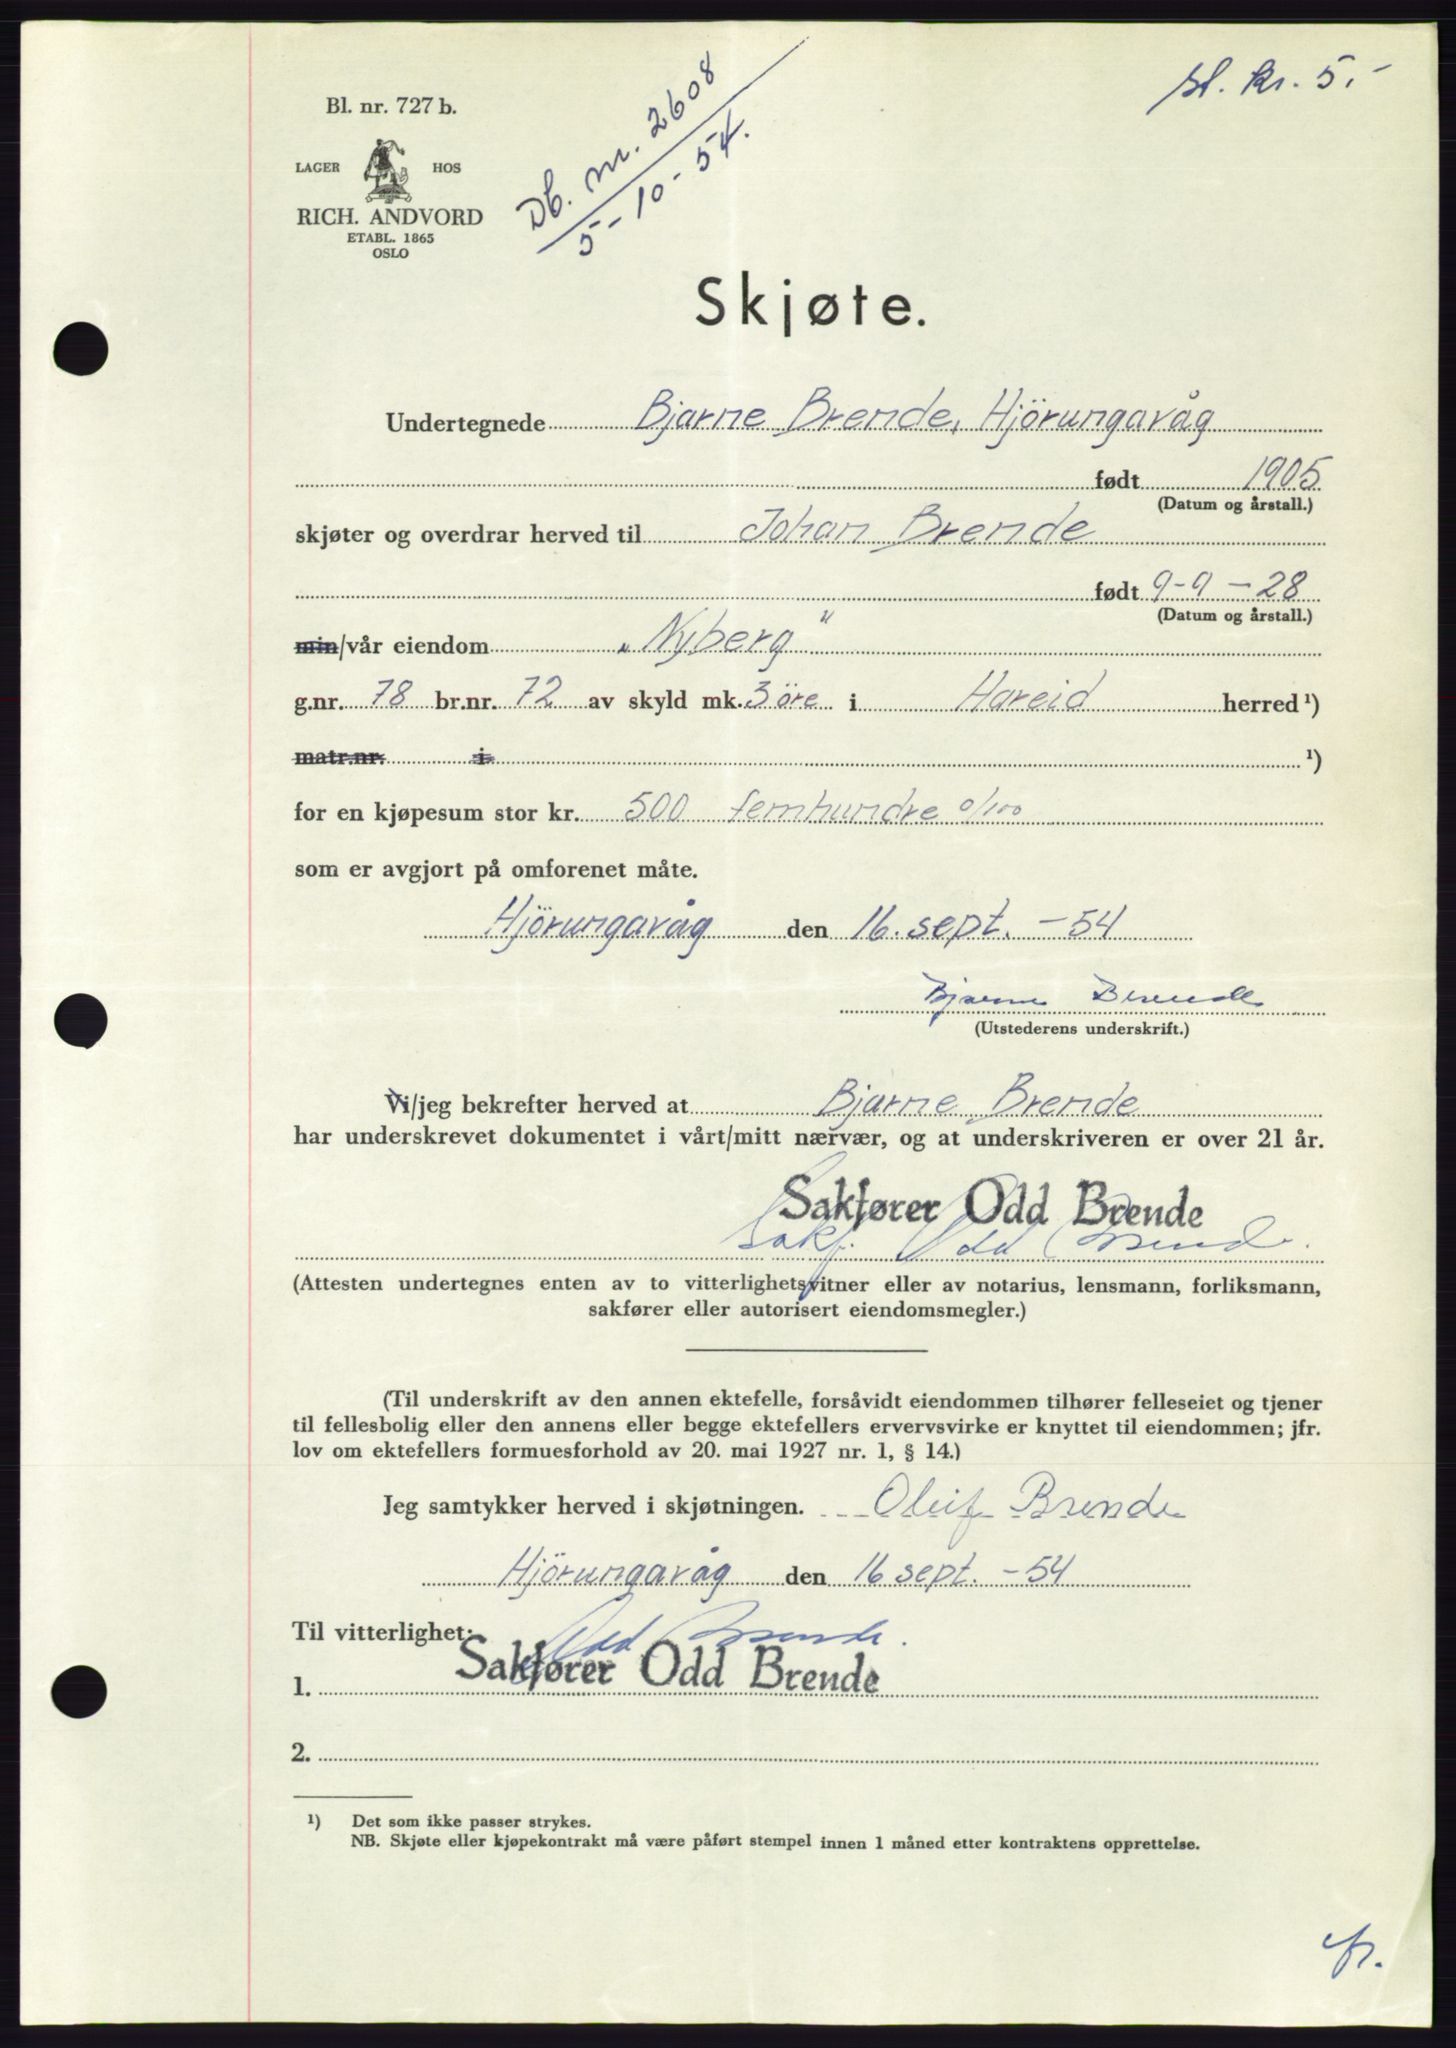 st. kr. 5.-
Db. nr. 2608
5-10-54.
Bl. nr. 727 b.
LAGER HOS
RICH. ANDVORD
ETABL. 1865
OSLO
Skjøte.
Undertegnede Bjarne Brende, Hjörungavåg
født 1905
(Datum og årstall.)
skjøter og overdrar herved til Johan Brende
født 9-9-28
(Datum og årstall.)
min/vår eiendom „Nyberg“
g.nr. 78 br.nr. 72 av skyld mk. 3 öre i Hareid herred ¹)
matr.nr. i ¹)
for en kjøpesum stor kr. 500 femhundre 0/100
som er avgjort på omforenet måte.
Hjörungavåg den 16. sept. -54
Bjarne Brende
(Utstederens underskrift.)
Vi/jeg bekrefter herved at Bjarne Brende
har underskrevet dokumentet i vårt/mitt nærvær, og at underskriveren er over 21 år.
Sakfører Odd Brende
Sakf. Odd Brende.
(Attesten undertegnes enten av to vitterlighetsvitner eller av notarius, lensmann, forliksmann,
sakfører eller autorisert eiendomsmegler.)
(Til underskrift av den annen ektefelle, forsåvidt eiendommen tilhører felleseiet og tjener
til fellesbolig eller den annens eller begge ektefellers ervervsvirke er knyttet til eiendommen; jfr.
lov om ektefellers formuesforhold av 20. mai 1927 nr. 1, § 14.)
Jeg samtykker herved i skjøtningen. Oleif Brende
Hjörungavåg den 16 sept. -54
Til vitterlighet: Odd Brende.
1. Sakfører Odd Brende
2.
¹) Det som ikke passer strykes.
NB. Skjøte eller kjøpekontrakt må være påført stempel innen 1 måned etter kontraktens opprettelse.